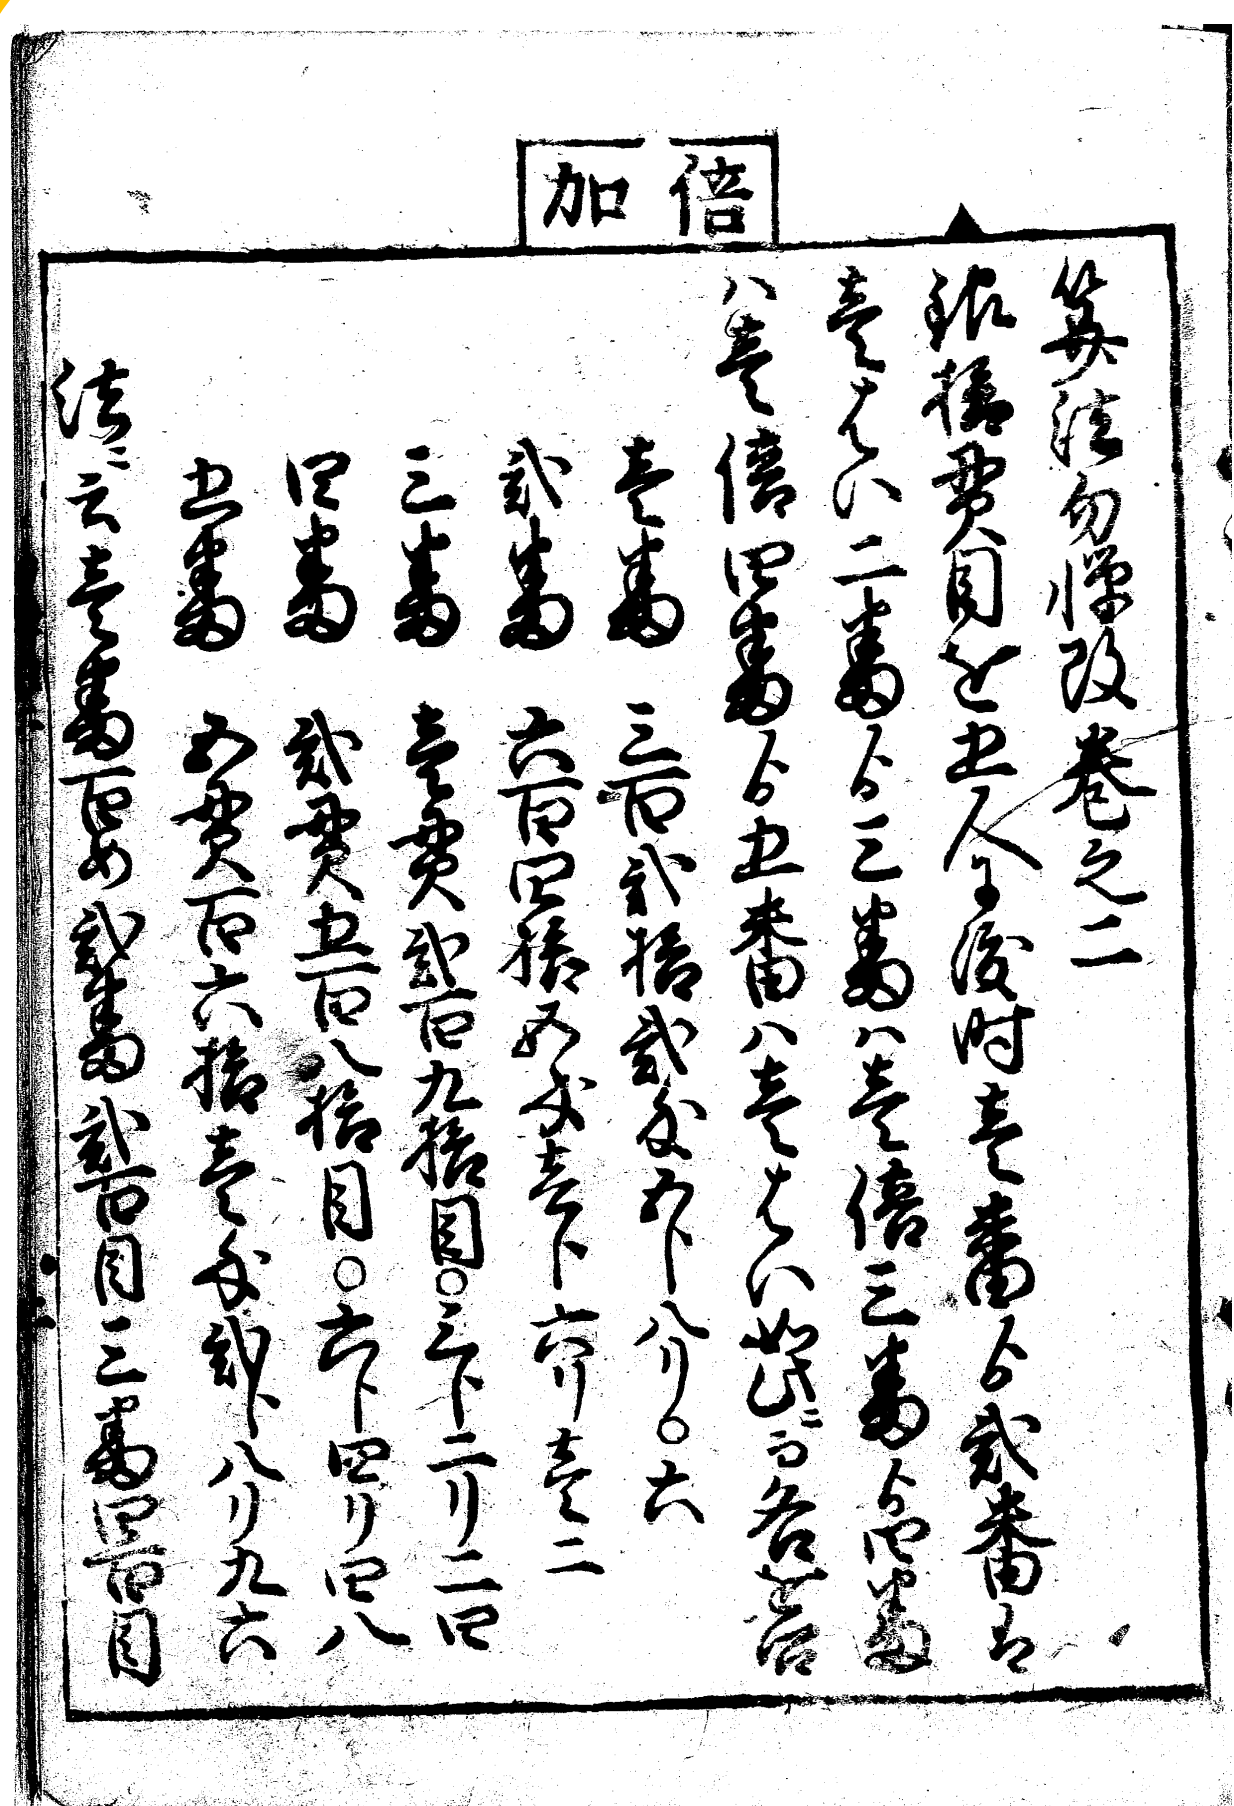 倍加
算法勿憚改巻之二
銀拾貫目を五人渡時壱番ゟ弐番は
壱はい二番ゟ三番ハ壱倍三番ゟ四番
ハ壱倍四番ゟ五番ハ壱はい如此ニ而各
壱番 三百弐拾弐匁五分八リ〇六
弐番 六百四拾五匁壱分六リ壱二
三番 壱貫弐百九拾目〇三分二リ二四
四番 弐貫五百八拾目〇六分四リ四八
五番 五貫百六拾壱匁弐分八リ九六
法ニ云壱番百め弐番弐百目三番四百目